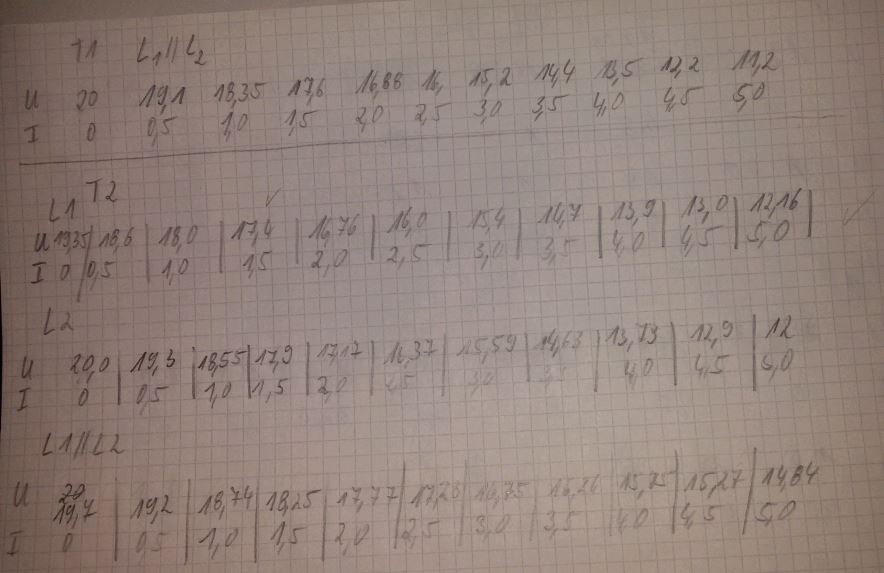 T1 L1//L2
U 20 19,1 18,35 17,6 16,88 16, 15,2 14,4 13,5 12,2 11,2
I 0 0,5 1,0 1,5 2,0 2,5 3,0 3,5 4,0 4,5 5,0
L1 T2
U 19,35 18,6 18,0 17,4 16,76 16,0 15,4 14,7 13,9 13,0 12,16
I 0 0,5 1,0 1,5 2,0 2,5 3,0 3,5 4,0 4,5 5,0
L2
U 20,0 19,3 18,55 17,9 17,17 16,37 15,59 14,63 13,73 12,9 12
I 0 0,5 1,0 1,5 2,0 2,5 3,0 3,5 4,0 4,5 5,0
L1//L2
20
U 19,7 19,2 18,74 18,25 17,77 17,23 16,75 16,26 15,75 15,27 14,84
I 0 0,5 1,0 1,5 2,0 2,5 3,0 3,5 4,0 4,5 5,0